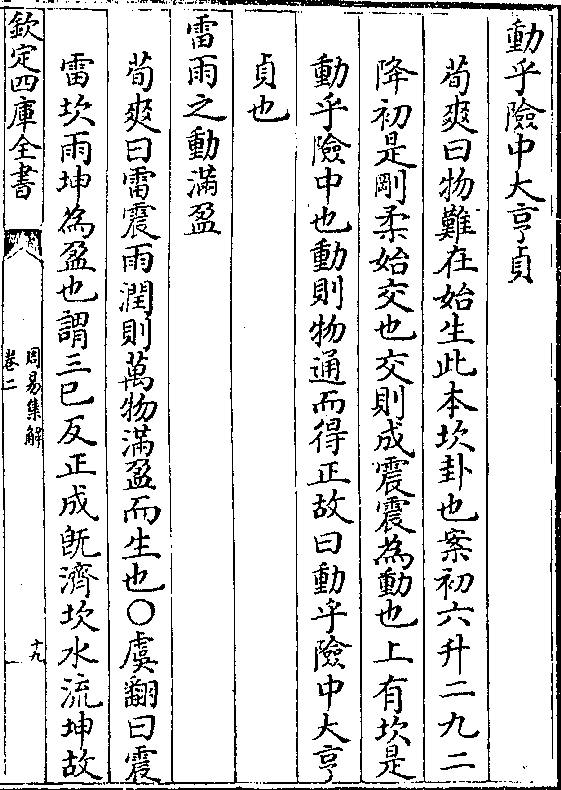 動乎險中大亨貞
荀爽曰物難在始生此本坎卦也案初六升二九二
降初是剛柔始交也交則成震震為動也上有坎是
動乎險中也動則物通而得正故曰動乎險中大亨
貞也
雷雨之動滿盈
荀爽曰雷震雨潤則萬物滿盈而生也〇虞翻曰震
雷坎雨坤為盈也謂三已反正成既濟坎水流坤故
欽定四庫全書
周易集解
卷二
十九